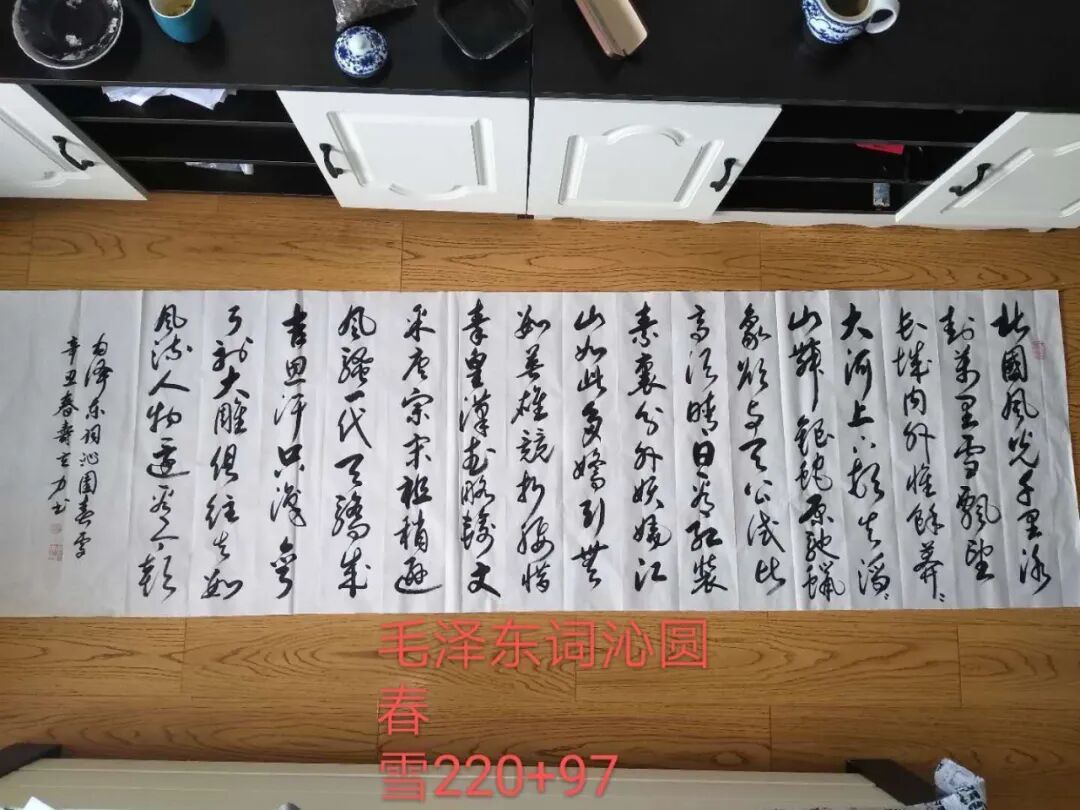 北國風光千里冰
封萬里雪飄望
长城内外惟餘莽々
大河上下頓失滔々
山舞銀蛇原馳蠟
象欲与天公试比
高须晴日看红装
素裹分外妖娆江
山如此多嬌引無
數英雄競折腰惜
秦皇漢武略輸文
采唐宗宋祖稍遜
風騷一代天驕成
吉思汗只識彎
弓射大雕俱往矣數
風流人物還看今朝
毛泽东词沁園春雪
辛丑春
毛泽东词沁圆
春
雪220+97